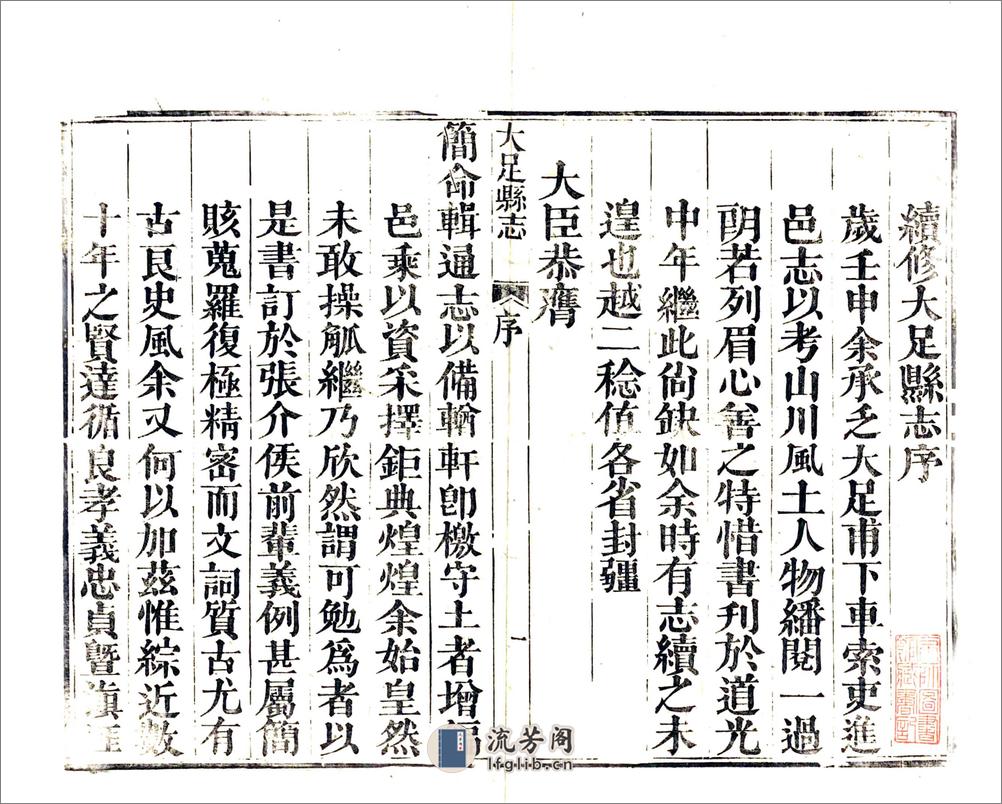 續修大足縣志序
歲壬申余承乏大足甫下車索吏進
邑志以考山川風土人物繙閱一過
朗若列眉心善之特惜書刊於道光
中年繼此尙缺如余時有志續之未
遑也越二稔值各省封疆
大臣恭膺
大足縣志 序 一
簡命輯通志以備輶軒卽檄守土者增
邑乘以資采擇鉅典煌煌余始皇然
未敢操觚繼乃欣然謂可勉爲者以
是書訂於張介侯前輩義例甚屬簡
賅蒐羅復極精密而文詞質古尤有
古良史風余又何以加茲惟綜近數
十年之賢達循良孝義忠貞曁滇
流芳阁
lfglib.cn